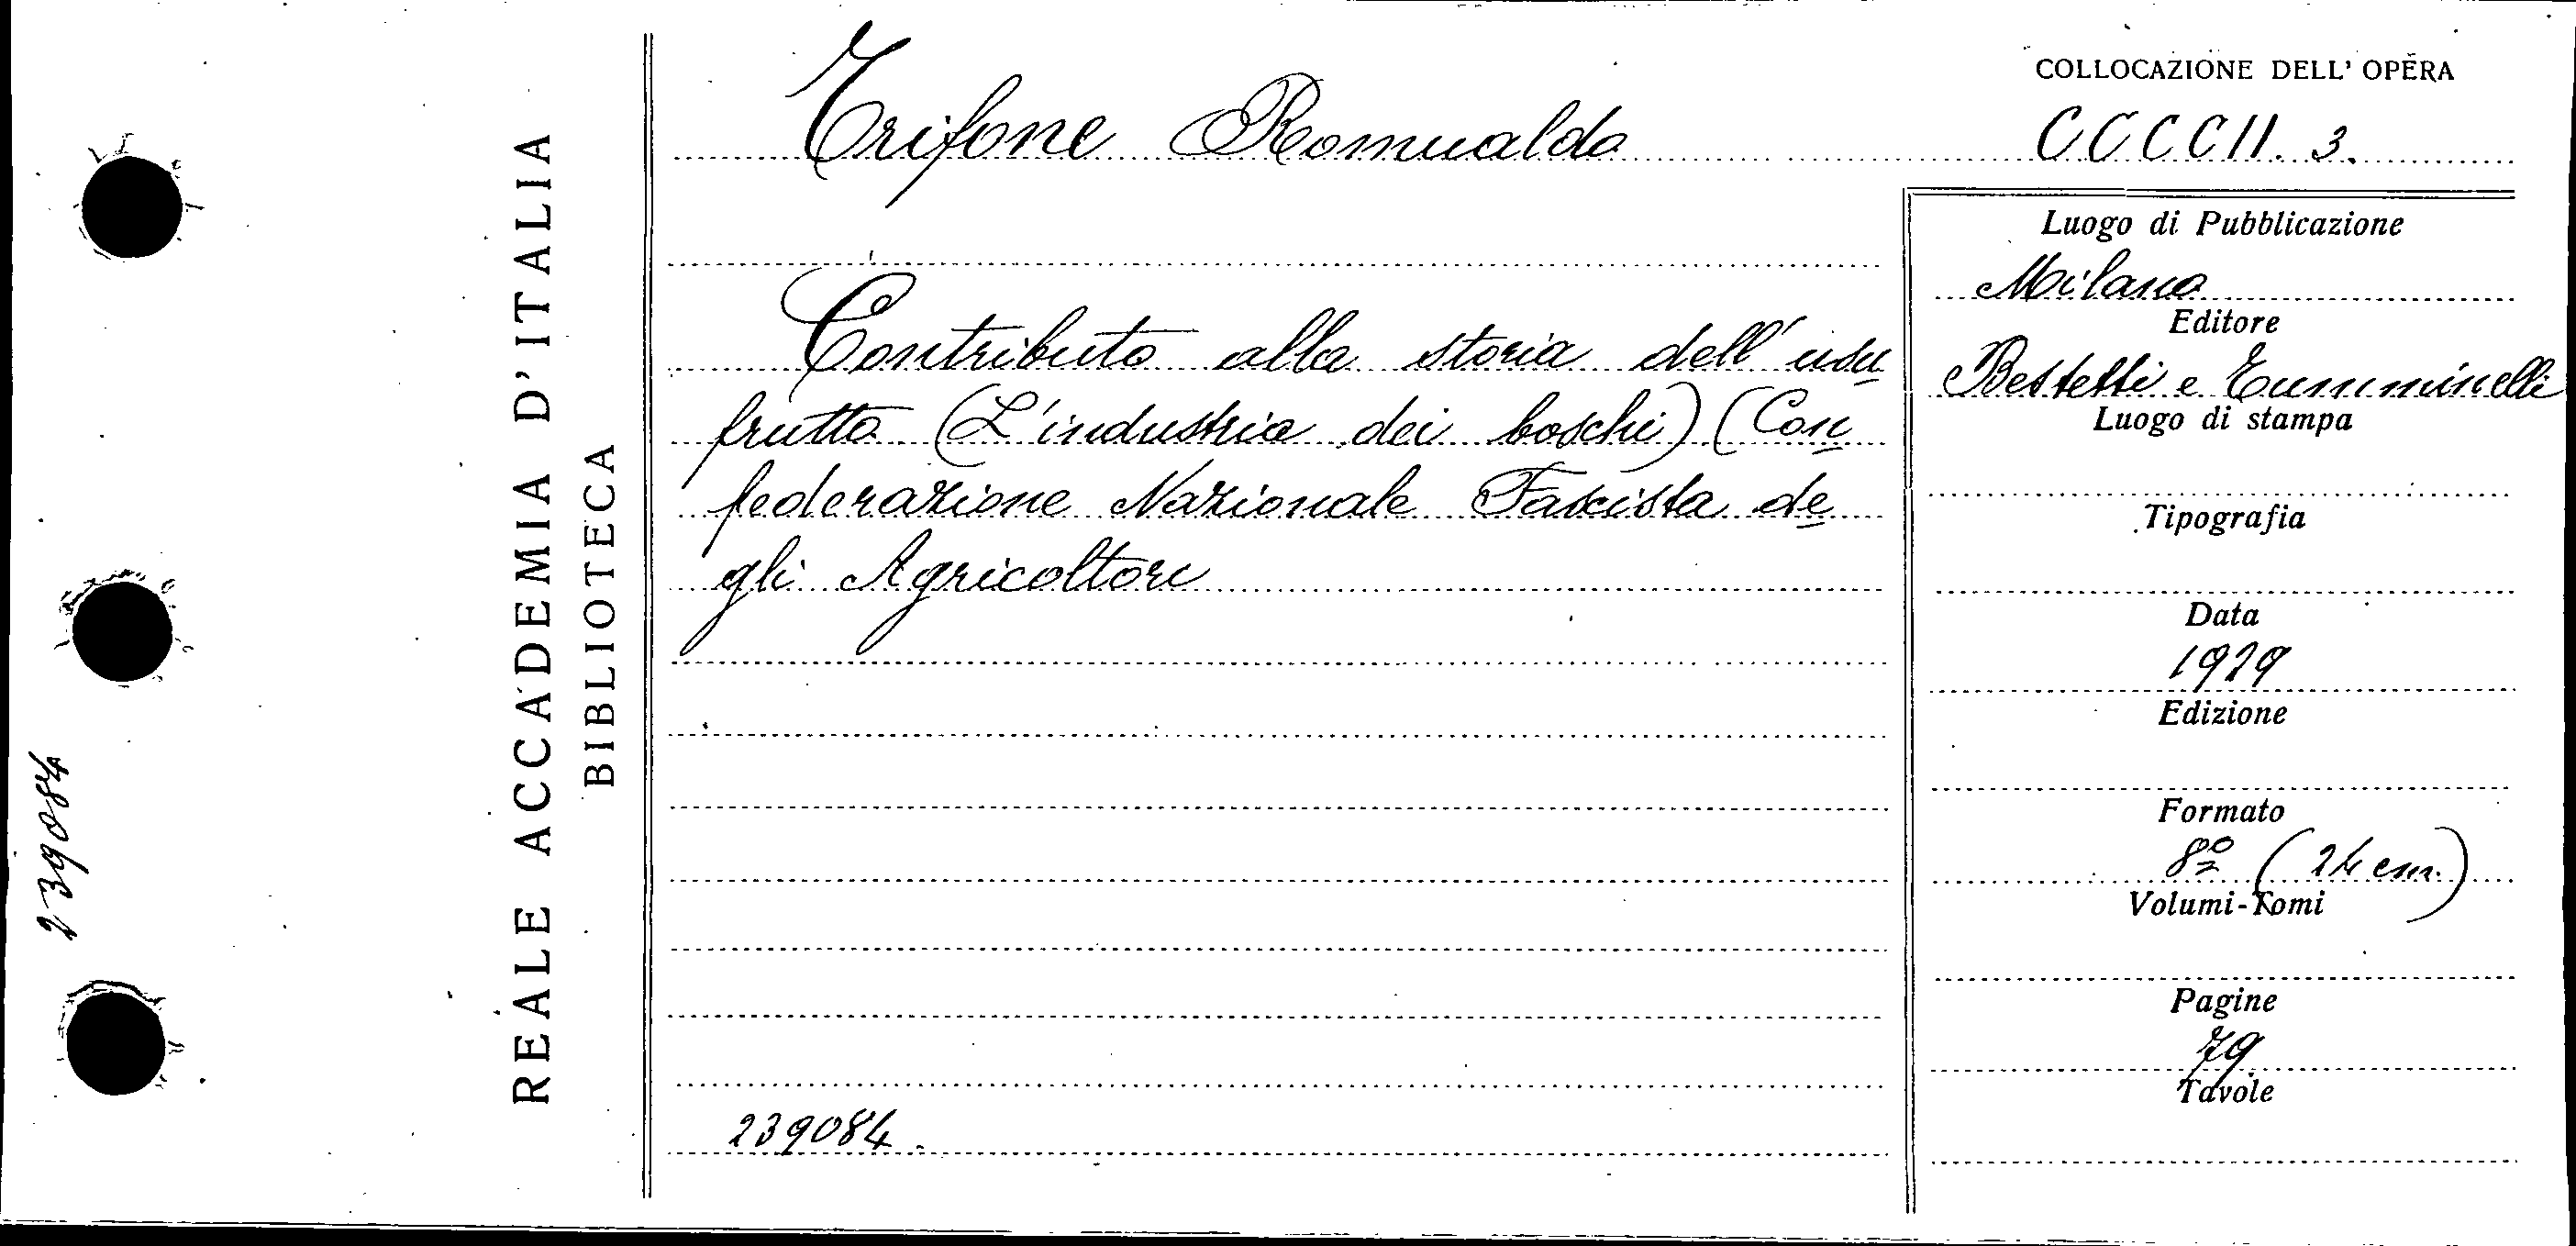 239084
REALE ACCADEMIA D'ITALIA
BIBLIOTECA
Trifone Romualdo
Contributo alla storia dell'usu
frutto (L'industria dei boschi) (Con
federazione Nazionale Fascista de
gli Agricoltori
239084.
COLLOCAZIONE DELL' OPERA
CCCCII. 3.
Luogo di Pubblicazione
Milano
Editore
Bestetti e Tumminelli
Luogo di stampa
Tipografia
Data
1929
Edizione
Formato
8º (24 cm.)
Volumi-Tomi
Pagine
79.
Tavole